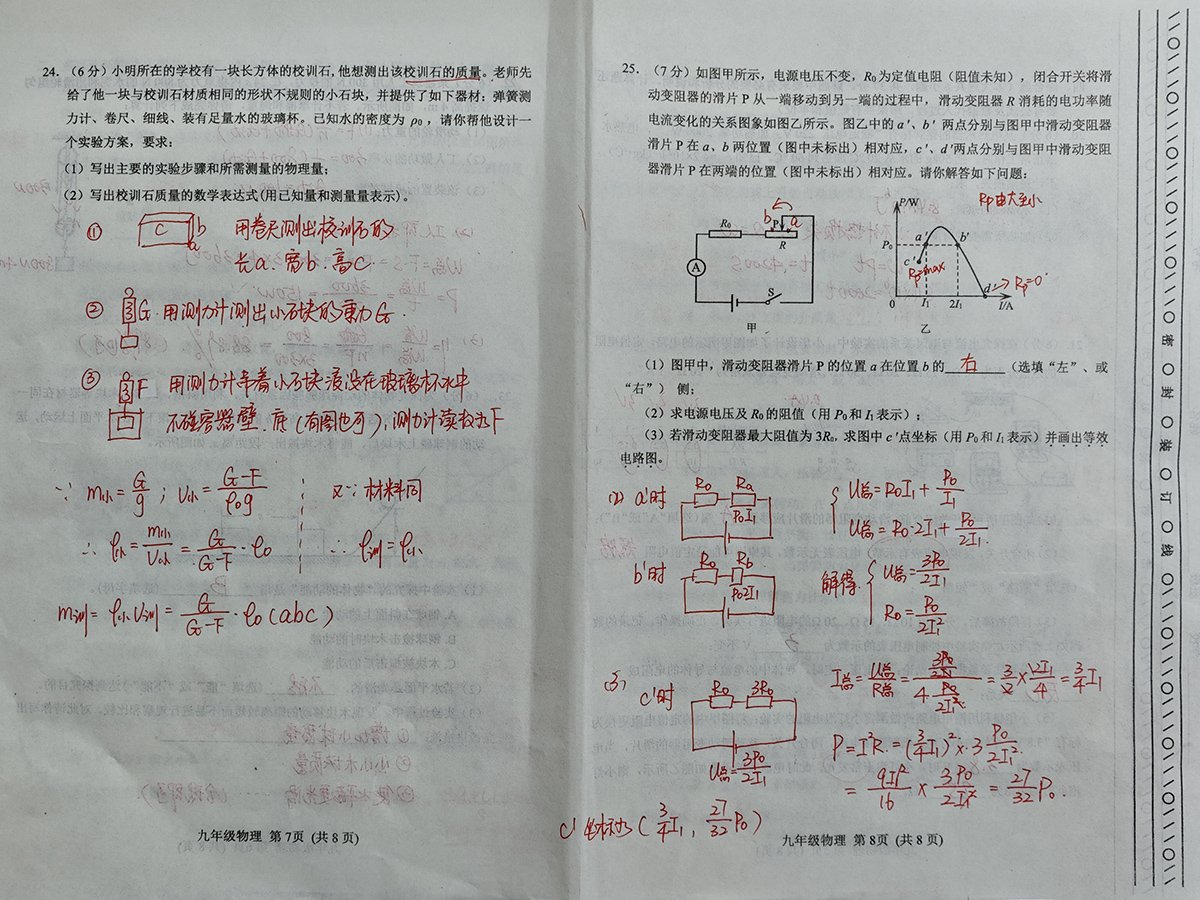 24. (6分)小明所在的学校有一块长方体的校训石,他想测出该校训石的质量。老师先
给了他一块与校训石材质相同的形状不规则的小石块,并提供了如下器材:弹簧测
力计、卷尺、细线、装有足量水的玻璃杯。已知水的密度为 ρ₀,请你帮他设计一
个实验方案,要求:
(1)写出主要的实验步骤和所需测量的物理量;
(2)写出校训石质量的数学表达式(用已知量和测量量表示)。
① C b a 用卷尺测出校训石的
长a. 宽b. 高c.
② G. 用测力计测出小石块的重力G.
③ F 用测力计吊着小石块浸没在玻璃杯水中
不碰容器壁. 底(有图也可), 测力计读数为F
∵ m小=G/g ; V小=(G-F)/ρ₀g 又∵材料同
∴ ρ小=m小/V小=G/(G-F)·ρ₀ ∴ ρ训=ρ小
m训=ρ小V训=G/(G-F)·ρ₀(abc)
九年级物理 第7页 (共8页)
25. (7分)如图甲所示,电源电压不变,R₀为定值电阻(阻值未知),闭合开关将滑
动变阻器的滑片 P 从一端移动到另一端的过程中,滑动变阻器 R 消耗的电功率随
电流变化的关系图象如图乙所示。图乙中的 a′、b′ 两点分别与图甲中滑动变阻器
滑片 P 在 a、b 两位置(图中未标出)相对应,c′、d′两点分别与图甲中滑动变阻
器滑片 P 在两端的位置(图中未标出)相对应。请你解答如下问题:
Rp由大至小
R₀ b P a R A S
甲
P/W P₀ a′ b′ c′ d′ Rp=max Rp=0
0 I₁ 2I₁ I/A
乙
(1)图甲中,滑动变阻器滑片 P 的位置 a 在位置 b 的 右 (选填“左”、或
“右”)侧;
(2)求电源电压及 R₀的阻值(用 P₀和 I₁表示);
(3)若滑动变阻器最大阻值为 3R₀,求图中 c′点坐标(用 P₀和 I₁表示)并画出等效
电路图。
(2) a′时 R₀ Ra P₀I₁ U总=R₀I₁+P₀/I₁
U总=R₀·2I₁+P₀/2I₁.
b′时 R₀ Rb P₀2I₁ 解得 U总=3P₀/2I₁
R₀=P₀/2I₁²
(3) c′时 R₀ 3R₀ U总=3P₀/2I₁
I总=U总/R总=(3P₀/2I₁)/(4P₀/2I₁²)=3/2×2I₁/4=3/4I₁
P=I²R=(3/4I₁)²×3P₀/2I₁²
=9I₁²/16×3P₀/2I₁²=27/32P₀.
c′坐标为(3/4I₁, 27/32P₀)
九年级物理 第8页 (共8页)
密 封 装 订 线